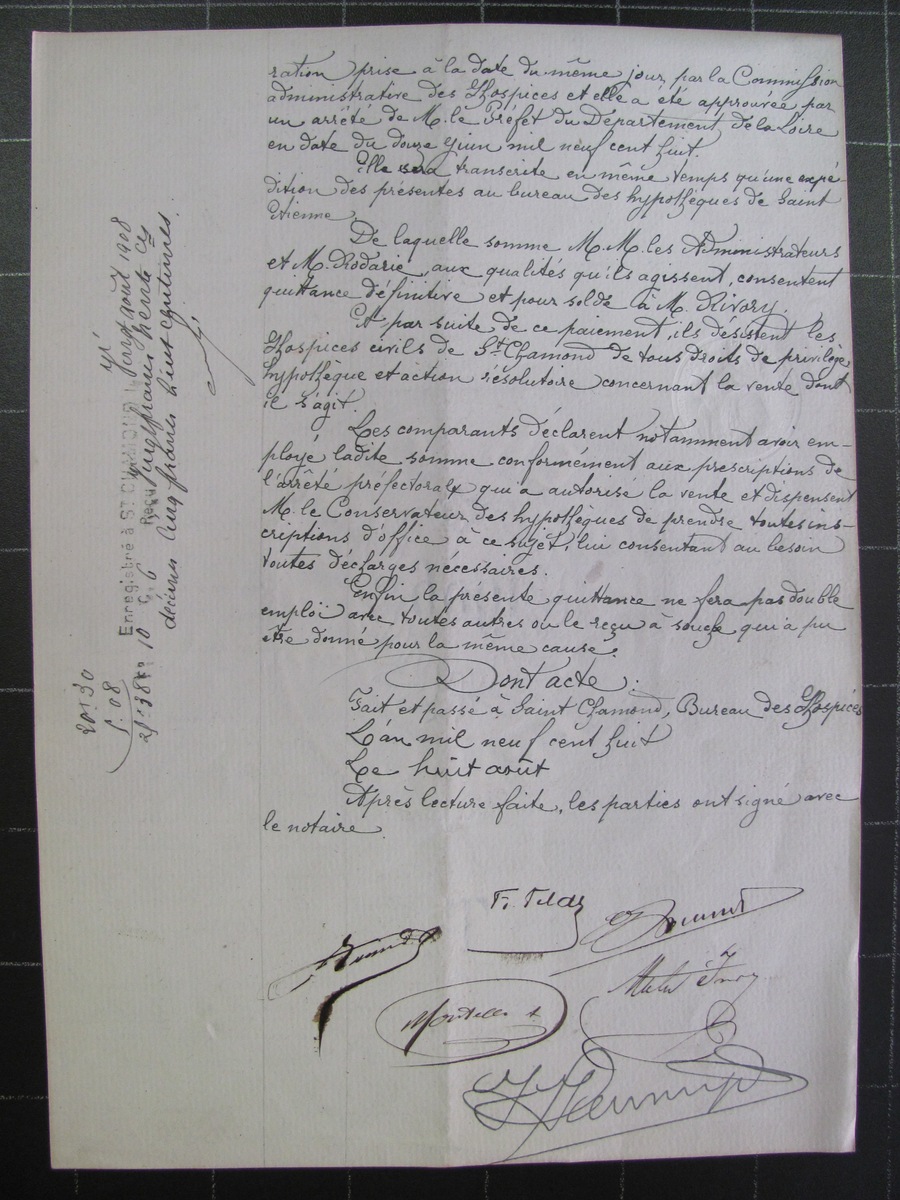 ration prise à la date du même jour, par la Commission
administrative des Hospices et elle a été approuvée par
un arrêté de M. le Préfet du Département de la Loire
en date du douze Juin mil neuf cent huit.
Elle sera transcrite en même temps qu'une expé-
dition des présentes au bureau des hypothèques de Saint
Etienne.
De laquelle somme M.M. les Administrateurs
et M. Rodarie, aux qualités qu'ils agissent, consentent
quittance définitive et pour solde à M. Rivory.
Et par suite de ce paiement, ils désistent les
Hospices civils de St Chamond de tous droits de privilège,
hypothèque et action résolutoire concernant la vente dont
il s'agit.
Les comparants déclarent notamment avoir em-
ployé ladite somme conformément aux prescriptions de
l'arrêté préfectoral qui a autorisé la vente et dispensent
M. le Conservateur des hypothèques de prendre toutes ins-
criptions d'office à ce sujet, lui consentant au besoin
toutes décharges nécessaires.
Enfin la présente quittance ne fera pas double
emploi avec toutes autres ou le reçu à souche qui a pu
être donné pour la même cause.
Dont acte.
Fait et passé à Saint Chamond, Bureau des Hospices
L'an mil neuf cent huit
Le huit août
Après lecture faite, les parties ont signé avec
le notaire.
Enregistré à ST CHAMOND le vingt août 1908
Reçu vingt francs trente cs
décimes cinq francs huit centimes.
20.30
5.08
25.38